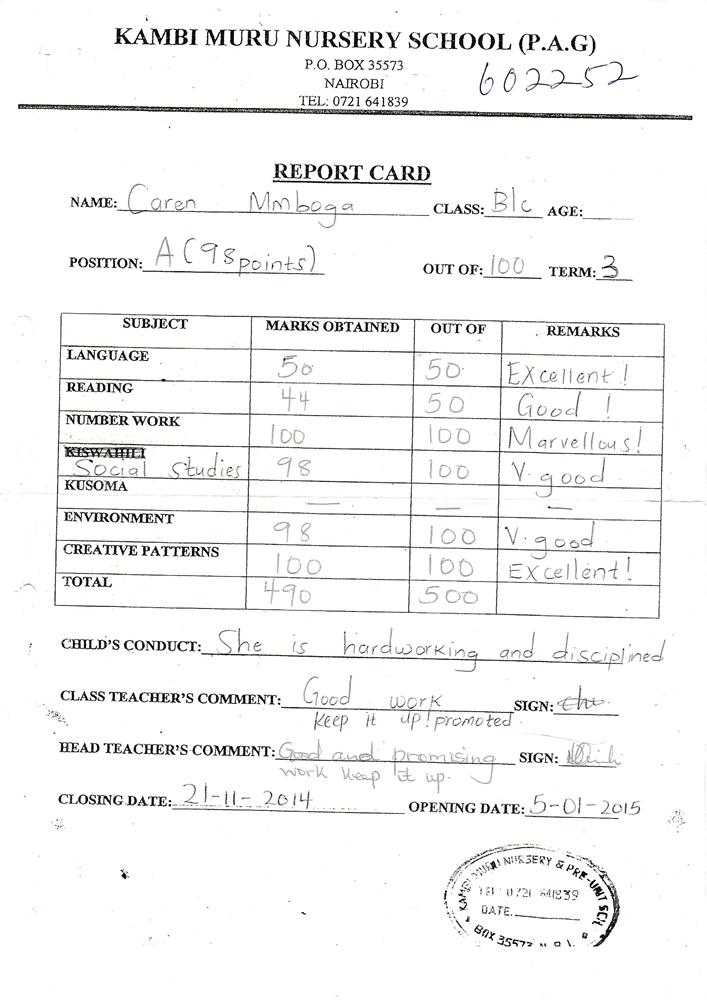 KAMBI MURU NURSERY SCHOOL (P.A.G)
P.O. BOX 35573
602252
NAIROBI
TEL: 0721 641839
REPORT CARD
NAME: Caren Mmboga CLASS: B1c AGE:
POSITION: A (98 points) OUT OF: 100 TERM: 3
SUBJECT MARKS OBTAINED OUT OF REMARKS
LANGUAGE 50 50 EXcellent!
READING 44 50 Good!
NUMBER WORK 100 100 Marvellous!
KISWAHILI
Social Studies 98 100 V. good
KUSOMA — — —
ENVIRONMENT 98 100 V. good
CREATIVE PATTERNS 100 100 EXcellent!
TOTAL 490 500
CHILD'S CONDUCT: She is hardworking and disciplined
CLASS TEACHER'S COMMENT: Good work SIGN:
keep it up! promoted.
HEAD TEACHER'S COMMENT: Good and promising SIGN:
work keep it up.
CLOSING DATE: 21-11-2014 OPENING DATE: 5-01-2015
KAMBI MURU NURSERY & PRE-UNIT SCH
TEL: 0721 641839
DATE
BOX 35573